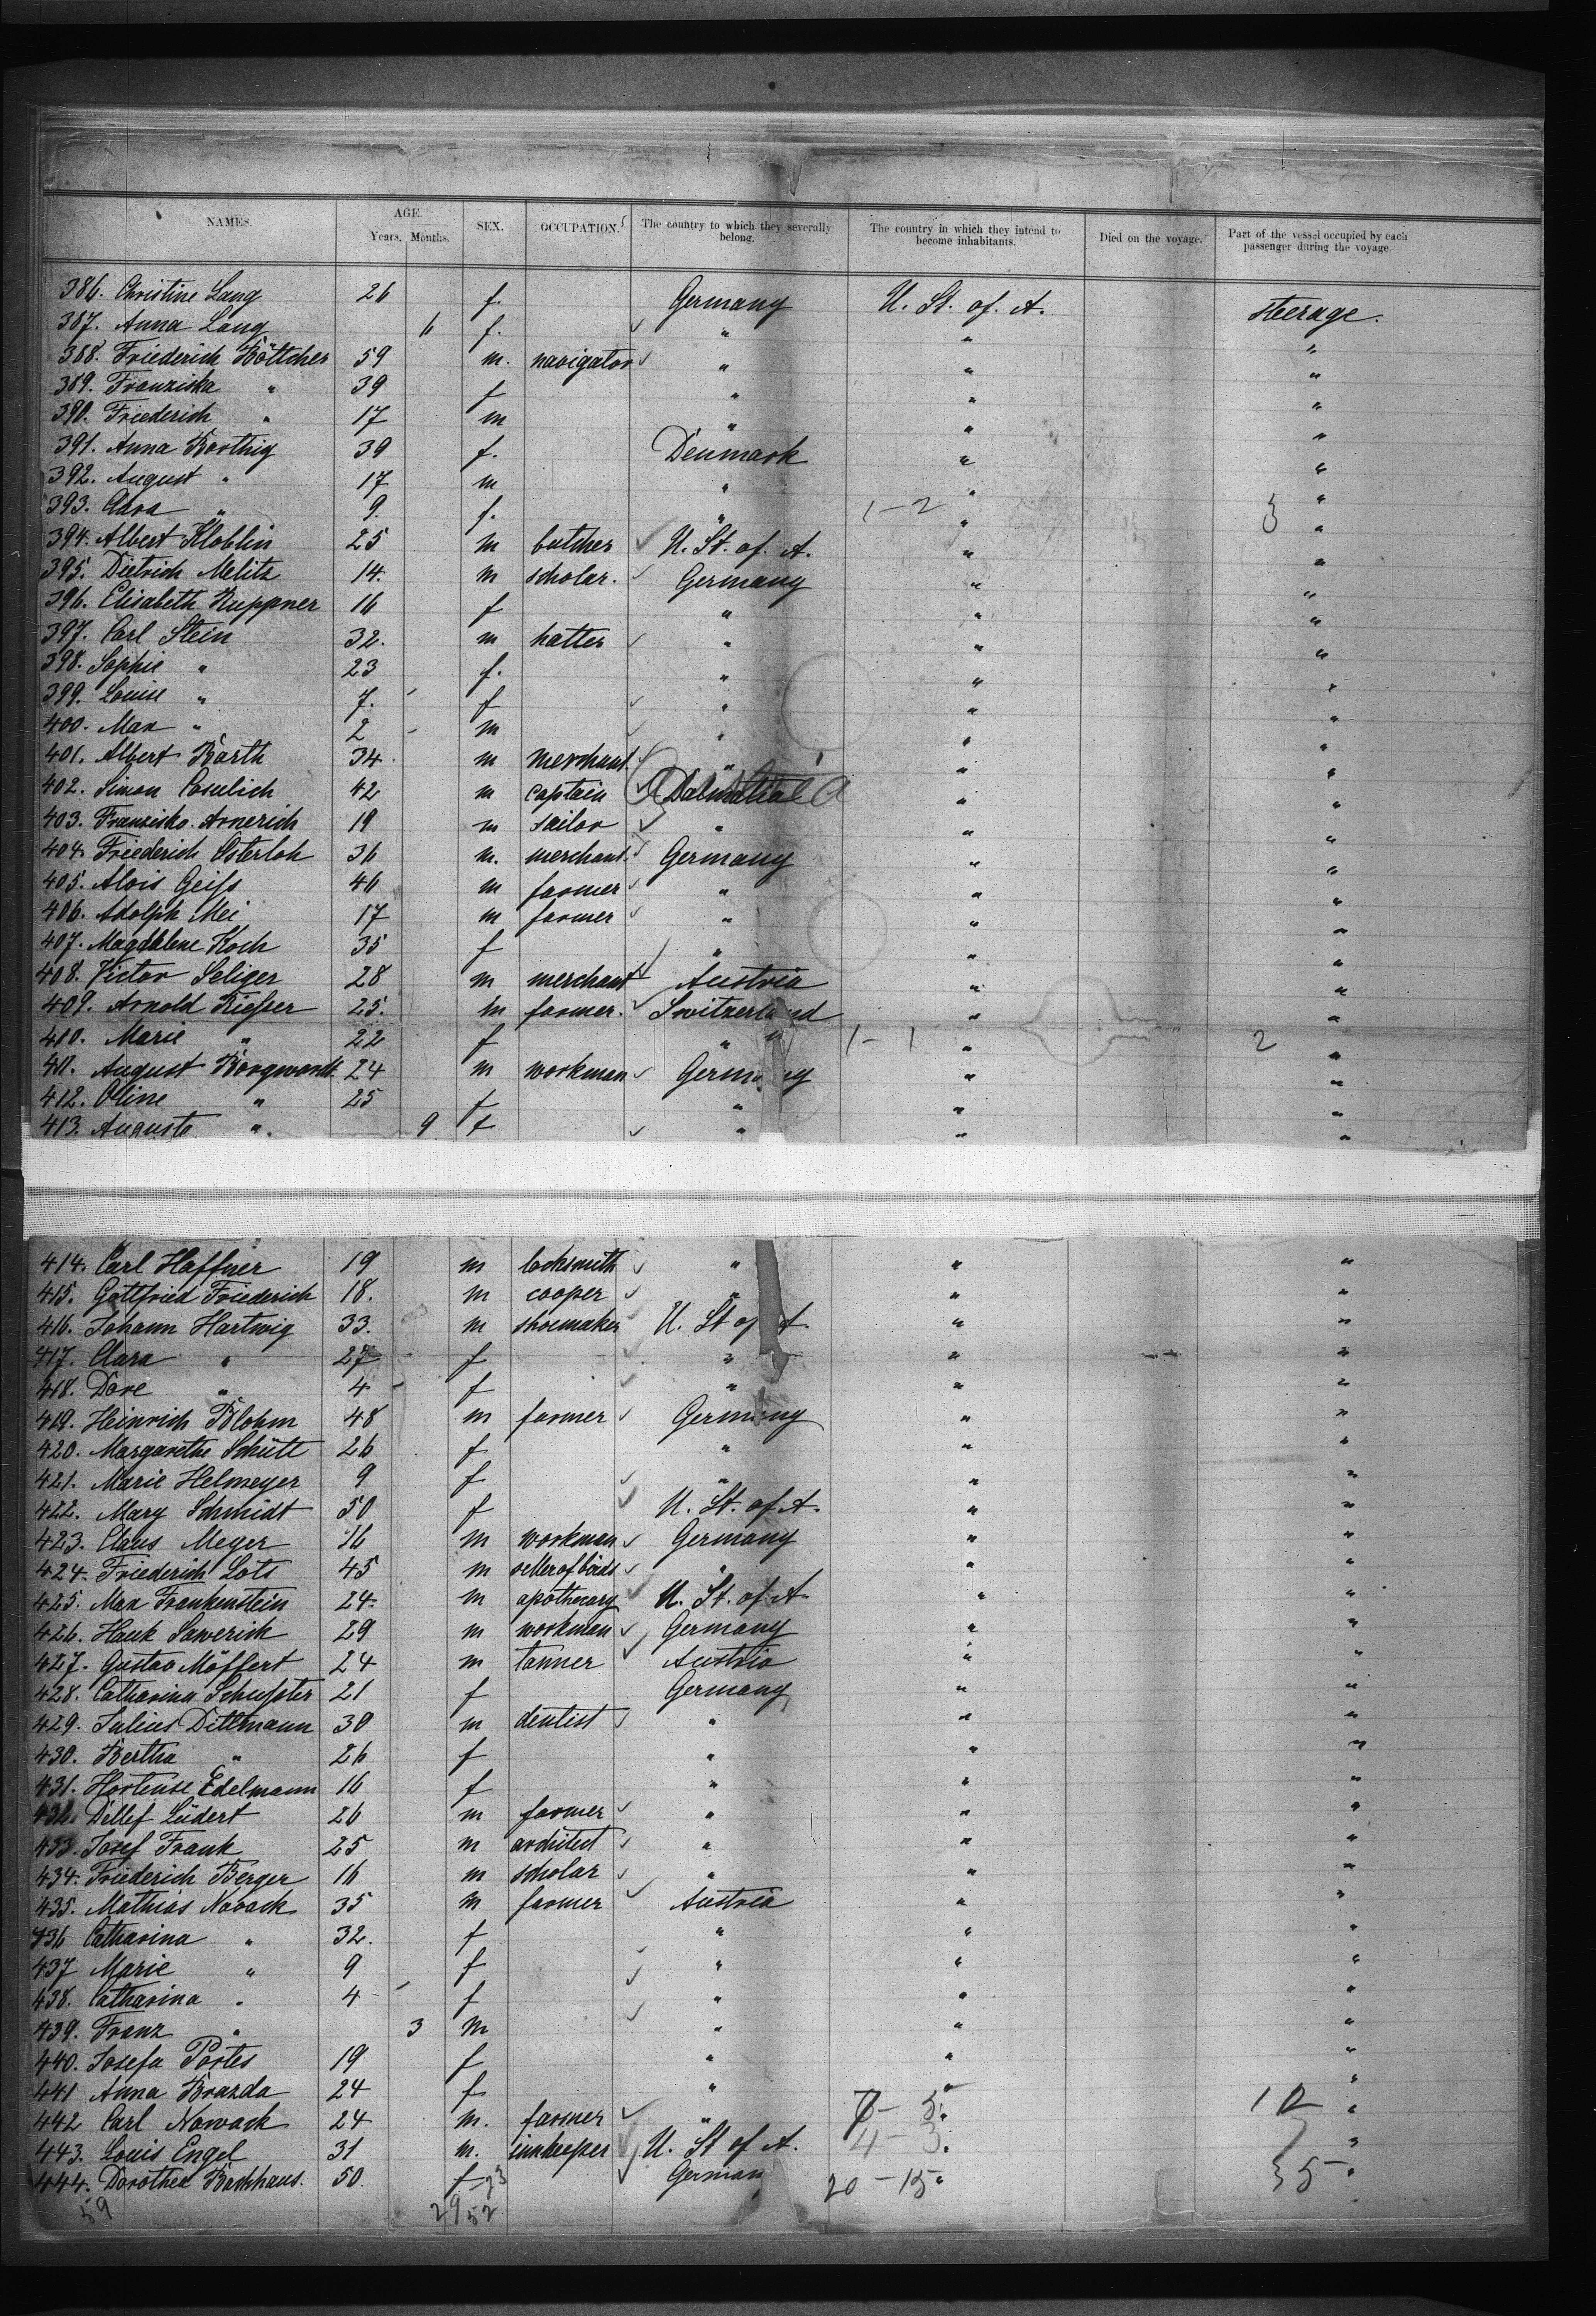 NAMES. AGE. Years. Months. SEX. OCCUPATION. The country to which they severally belong. The country in which they intend to become inhabitants. Died on the voyage. Part of the vessel occupied by each passenger during the voyage.
386. Christine Lang 26 f. Germany U. St. of. A. steerage.
387. Anna Lang 6 f. " " "
388. Friederich Böttcher 59 m. navigator " " "
389. Franziska " 39 f " " "
390. Friederich " 17 m " " "
391. Anna Borthig 39 f. Denmark " "
392. August " 17 m " " "
393. Clara " 9. f. " 1-2 " 3 "
394. Albert Kloblin 25 m butcher U. St. of. A. " "
395. Dietrich Melitz 14. m scholar. Germany " "
396. Elisabeth Ruppner 16 f " " "
397. Carl Stein 32. m hatter " " "
398. Sophie " 23 f. " " "
399. Louise " 7. f " " "
400. Max " 2 m " " "
401. Albert Barth 34 m merchant. " " "
402. Simon Cosulich 42 m captain Dalmatia " "
403. Franzisko. Arnerich 19 m sailor " " "
404. Friederich Osterloh 36 m. merchant. Germany " "
405. Alois Geiss 46 m farmer " " "
406. Adolph Mei 17 m farmer " " "
407. Magdalene Koch 35 f " " "
408. Victor Seliger 28 m merchant Austria " "
409. Arnold Riesser 25. m farmer. Switzerland " "
410. Marie " 22 f " 1-1 " 2 "
411. August Borgwardt 24 m workman Germany " "
412. Oline " 25 f " " "
413. Auguste " 9 f " " "
414. Carl Haffner 19 m locksmith " " "
415. Gottfried Friederich 18. m cooper " " "
416. Johann Hartwig 33. m shoemaker U. St of A " "
417. Clara " 27 f " " "
418. Dore " 4 f " " "
419. Heinrich Blohm 48 m farmer Germany " "
420. Margarethe Schütt 26 f " " "
421. Marie Helmeyer 9 f " " "
422. Mary Schmidt 50 f U. St. of A. " "
423. Claus Meyer 16 m workman Germany " "
424. Friederich Lots 45 m seller of birds " " "
425. Max Frankenstein 24. m apothecary U. St. of A. " "
426. Hauk Sawerich 29 m workman Germany " "
427. Gustav Möffert 24 m tanner Austria " "
428. Catharina Schuster 21 f Germany " "
429. Julius Dittmann 30 m dentist " " "
430. Bertha " 26 f " " "
431. Hortense Edelmann 16 f " " "
432. Detlef Lüdert 26 m farmer " " "
433. Josef Frank 25 m architect " " "
434. Friederich Berger 16 m scholar " " "
435. Mathias Novack 35 m farmer Austria " "
436 Catharina " 32. f " " "
437 Marie " 9 f " " "
438. Catharina " 4 f " " "
439. Franz " 3 m " " "
440. Josefa Portes 19 f " " "
441 Anna Brazda 24 f " " "
442 Carl Nowack 24 m. farmer " 7-5 " 12 "
443. Louis Engel 31 m. innkeeper U. St of A. 4-3 " "
444. Dorothea Backhaus. 50. f 23 German 20-15 " 35 "
59 29 52